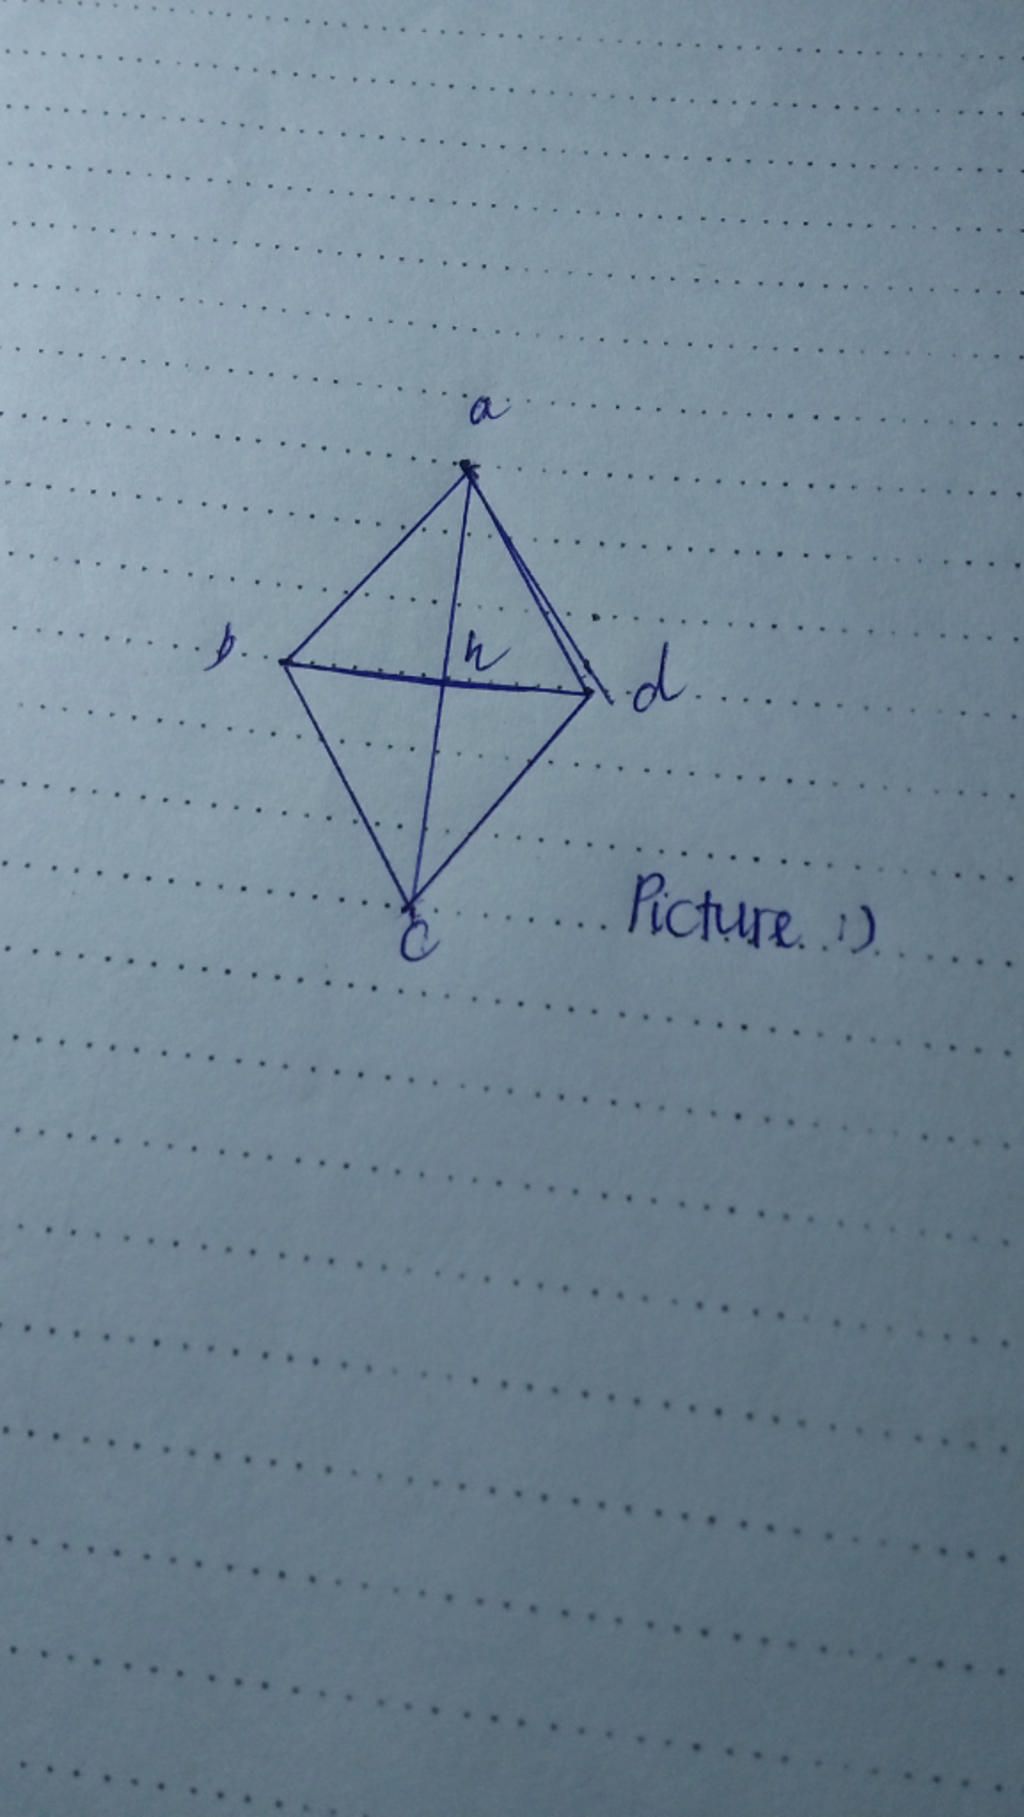 a
b
h
d
Picture :)
C